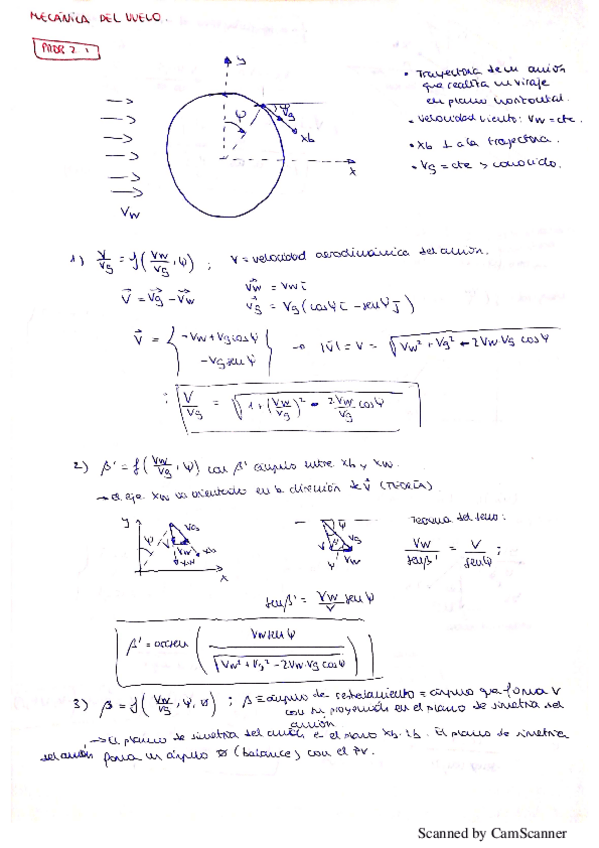 MECÁNICA DEL VUELO.
PROB 2.1
y
ψ
ψ
Vg
xb
x
Vw
• Trayectoria de un avión
que realiza un viraje
en plano horizontal.
• velocidad viento: Vw = cte.
• xb ⊥ a la trayectoria.
• Vg = cte > conocido.
1) V/Vg = f(Vw/Vg, ψ) ; V = velocidad aerodinámica del avión.
V = Vg - Vw
Vw = Vw i
Vg = Vg (cosψ i - senψ j)
V = { -Vw + Vg cosψ
-Vg senψ } → |V| = V = √(Vw² + Vg² - 2Vw Vg cosψ
: V/Vg = √(1 + (Vw/Vg)² - 2Vw/Vg cosψ
2) β' = f(Vw/Vg, ψ) con β' ángulo entre xb y xw.
→ el eje xw va orientado en la dirección de V (TEORÍA).
y
ψ
Vg
V
Vw
xb
xw
x
ψ
V
Vw
Teorema del seno:
Vw/senβ' = V/senψ ;
senβ' = Vw/V senψ
β' = arcsen (Vw senψ / √(Vw² + Vg² - 2Vw·Vg cosψ))
3) β = f(Vw/Vg, ψ, ø) ; β ≡ ángulo de resbalamiento = ángulo que forma V
con su proyección en el plano de simetría del
avión
→ El plano de simetría del avión es el plano xb-zb. El plano de simetría
del avión forma un ángulo ø (balance) con el PV.
Scanned by CamScanner